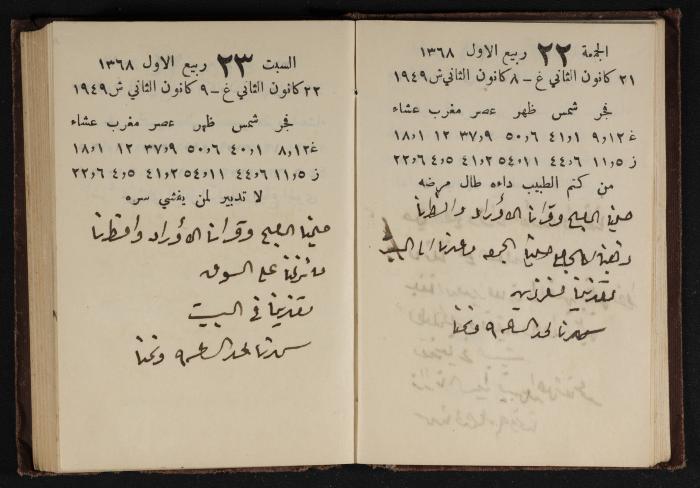 الجمعة ٢٢ ربيع الاول ١٣٦٨
٢١ كانون الثاني غ – ٨ كانون الثاني ش ١٩٤٩
فجر شمس ظهر عصر مغرب عشاء
غ ١٢٫٩ ١٫٤١ ٦٫٥٠ ٩٫٣٧ ١٢ ١٫١٨
ز ٥٫١١ ٦٫٤٤ ١١٫٥٤ ٢٫٤١ ٥٫٤ ٦٫٢٢
من كتم الطبيب داءه طال مرضه
صلينا الصبح وقرأنا الأوراد وافطرنا
صلينا الجمعه وعدنا الى البيت
تغدينا
سهرنا لحد الساعه ٩ ونمنا
السبت ٢٣ ربيع الاول ١٣٦٨
٢٢ كانون الثاني غ – ٩ كانون الثاني ش ١٩٤٩
فجر شمس ظهر عصر مغرب عشاء
غ ١٢٫٨ ١٫٤٠ ٦٫٥٠ ٩٫٣٧ ١٢ ١٫١٨
ز ٥٫١١ ٦٫٤٤ ١١٫٥٤ ٢٫٤١ ٥٫٤ ٦٫٢٢
لا تدبير لمن يفشي سره
صلينا الصبح وقرأنا الأوراد وافطرنا
على السوق
تغدينا في البيت
سهرنا لحد الساعه ٩ ونمنا